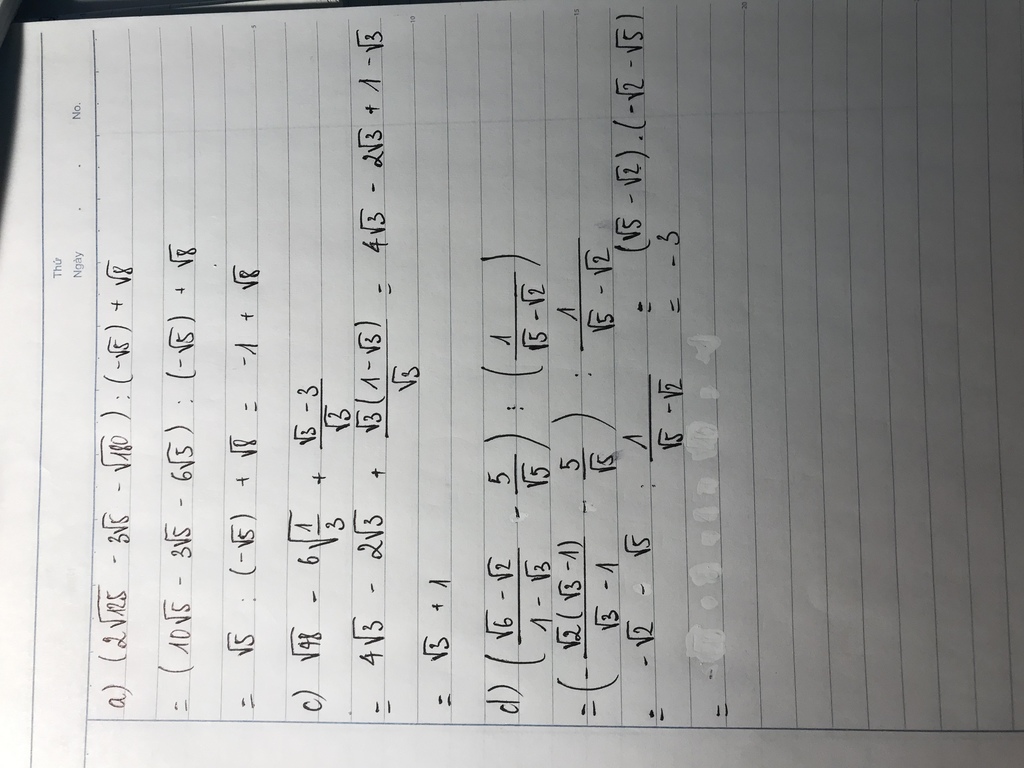 Thứ
Ngày . . No.
a) (2√125 - 3√5 - √180) : (-√5) + √8
= (10√5 - 3√5 - 6√5) : (-√5) + √8
= √5 : (-√5) + √8 = -1 + √8
c) √48 - 6√(1/3) + (√3 - 3)/√3
= 4√3 - 2√3 + √3(1-√3)/√3 = 4√3 - 2√3 + 1 - √3
= √3 + 1
d) ((√6 - √2)/(1 - √3) - 5/√5) : (1/(√5 - √2))
= (-√2(√3 - 1)/(√3 - 1) - 5/√5) : 1/(√5 - √2)
= -√2 - √5 : 1/(√5 - √2) = (√5 - √2).(-√2 - √5)
= = -3
5
10
15
20